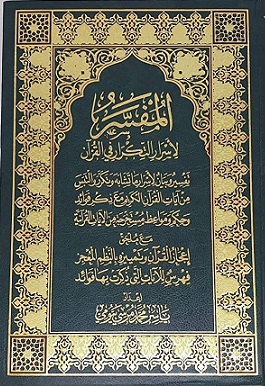 المُفَسِّرُ
لأسرار التكرار في القرآن
تفسير وبيان لأسرار ما تشابه وتكرر والتبس
من آيات القرآن الكريم مع ذكر فوائد
وحكم ومواعظ مستخرجة من الآيات القرآنية
مع ملحق
إعجاز القرآن وتميزه بالنظم المعجز
فهرس للآيات التي ذكرت بها فوائد
إعداد
ياسر محمد مرسي بيومي